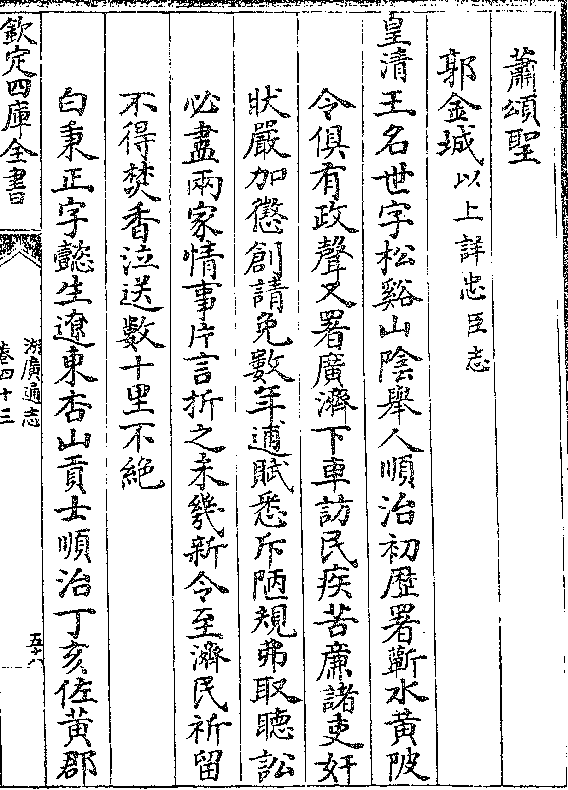 蕭頌聖
郭金城以上詳忠臣志
皇清王名世字松谿山隂舉人順治初歴署蘄水黄陂
令俱有政聲又署廣濟下車訪民疾苦亷諸吏奸
狀嚴加懲創請免數年逋賦悉斥陋規弗取聽訟
必盡兩家情事片言折之未幾新令至濟民祈留
不得焚香泣送數十里不絶
白秉正字懿生遼東杏山貢士順治丁亥佐黄郡
欽定四庫全書
湖廣通志
卷四十三
五十八